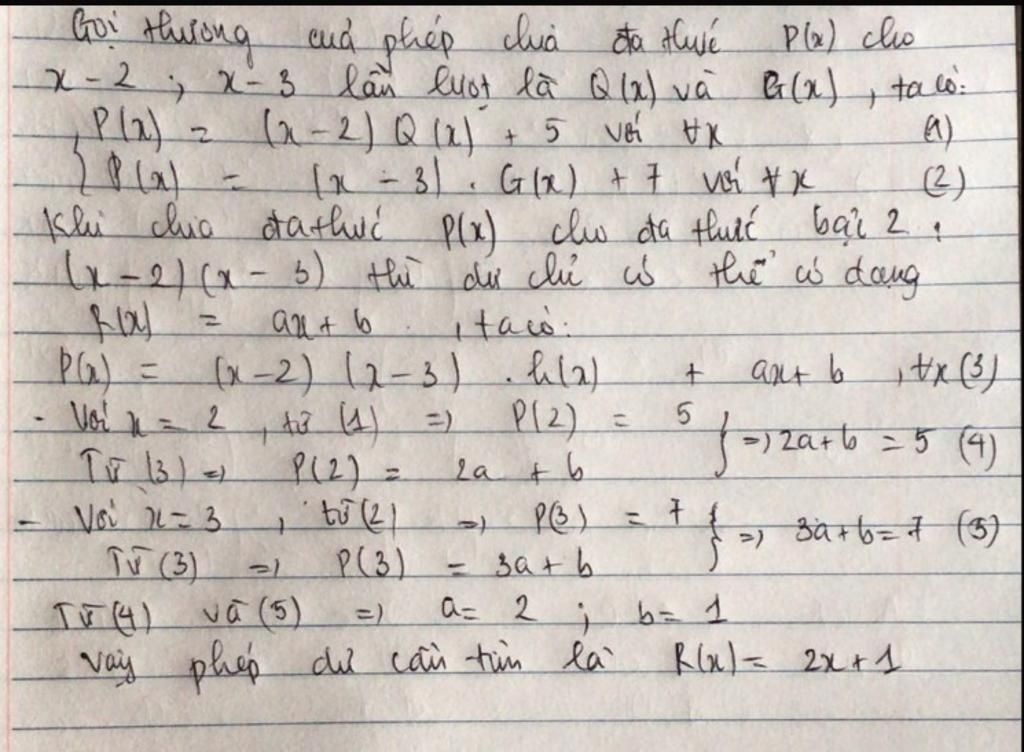 Gọi thương cuả phép chia đa thức P(x) cho
x - 2 ; x - 3 lần lượt là Q(x) và G(x) , ta có:
P(x) = (x - 2) Q(x) + 5 với ∀x (1)
P(x) = (x - 3) . G(x) + 7 với ∀x (2)
Khi chia đa thức P(x) cho đa thức bậc 2 :
(x - 2)(x - 3) thì dư chỉ có thể có dạng
R(x) = ax + b , ta có:
P(x) = (x-2) (x-3) . h(x) + ax + b , ∀x (3)
- Với x = 2 , từ (1) => P(2) = 5
Từ (3) => P(2) = 2a + b } => 2a + b = 5 (4)
- Với x = 3 , từ (2) => P(3) = 7
Từ (3) => P(3) = 3a + b } => 3a + b = 7 (5)
Từ (4) và (5) => a = 2 ; b = 1
Vậy phép dư cần tìm là R(x) = 2x + 1